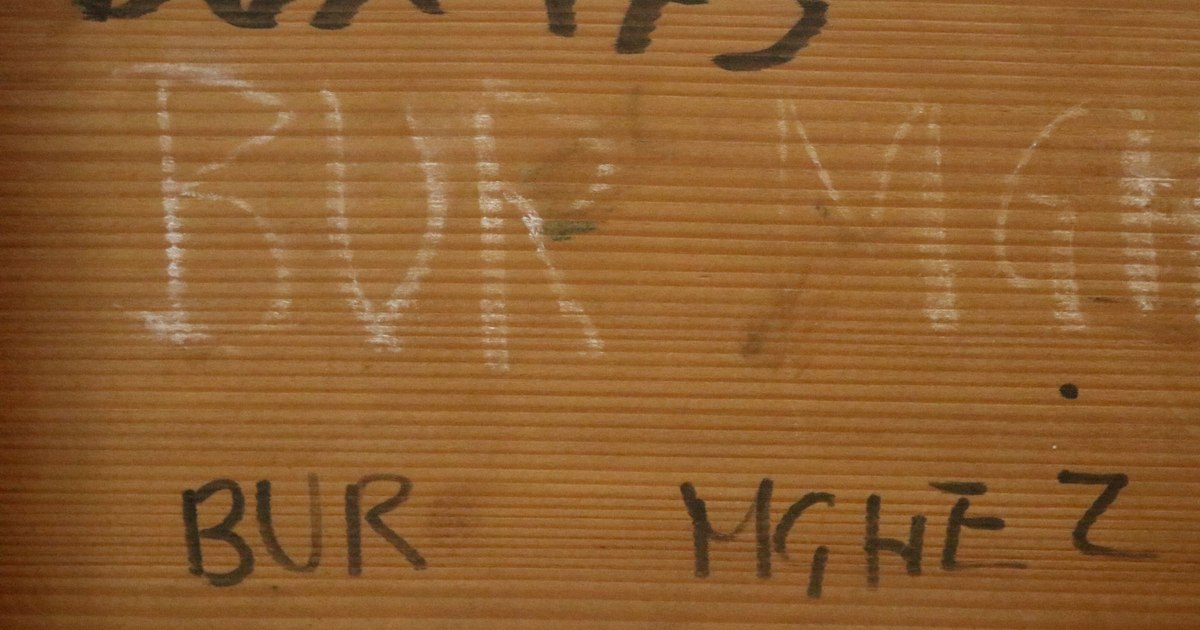 BUR MGH
BUR MGHEZ